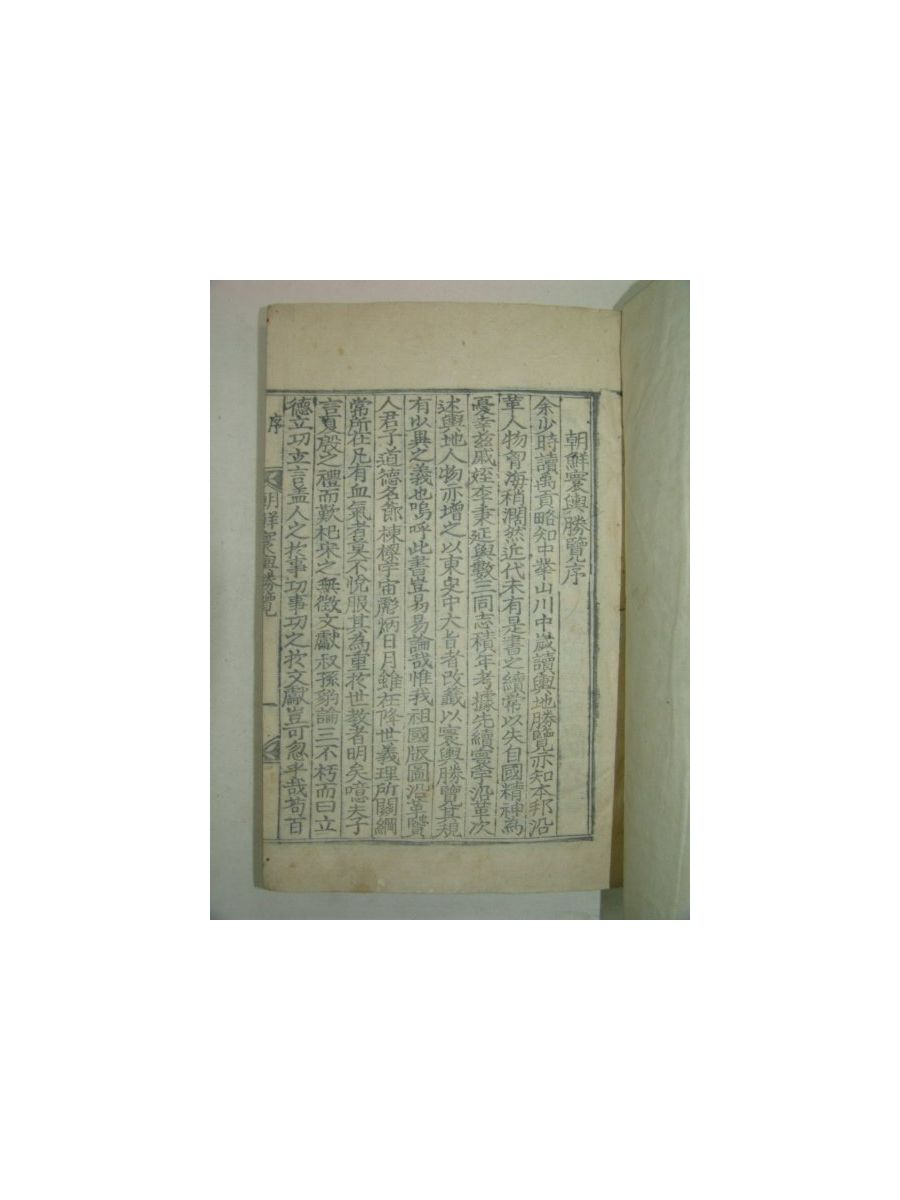 朝鮮寰輿勝覽序
余少時讀禹貢略知中華山川中歲讀輿地勝覽亦知本邦沿
革人物會海稍濶然近代未有是書之續常以失自國精神爲
憂幸玆戚姪李秉延與數三同志積年考據先續寰宇沿革次
述輿地人物亦增之以東史中大旨者改籤以寰輿勝覽其規
有少異之義也嗚呼此書豈易易論哉惟我祖國版圖沿革賢
人君子道德名節棟樑宇宙彪炳日月雖在降世義理所關綱
常所在凡有血氣者莫不悅服其為重於世教者明矣噫夫子
言夏殷之禮而歎杞宋之無徵文獻叔孫豹論三不朽而曰立
德立功立言盖人之於事功事功之於文獻豈可忽乎哉苟百
序
朝鮮寰輿勝覽